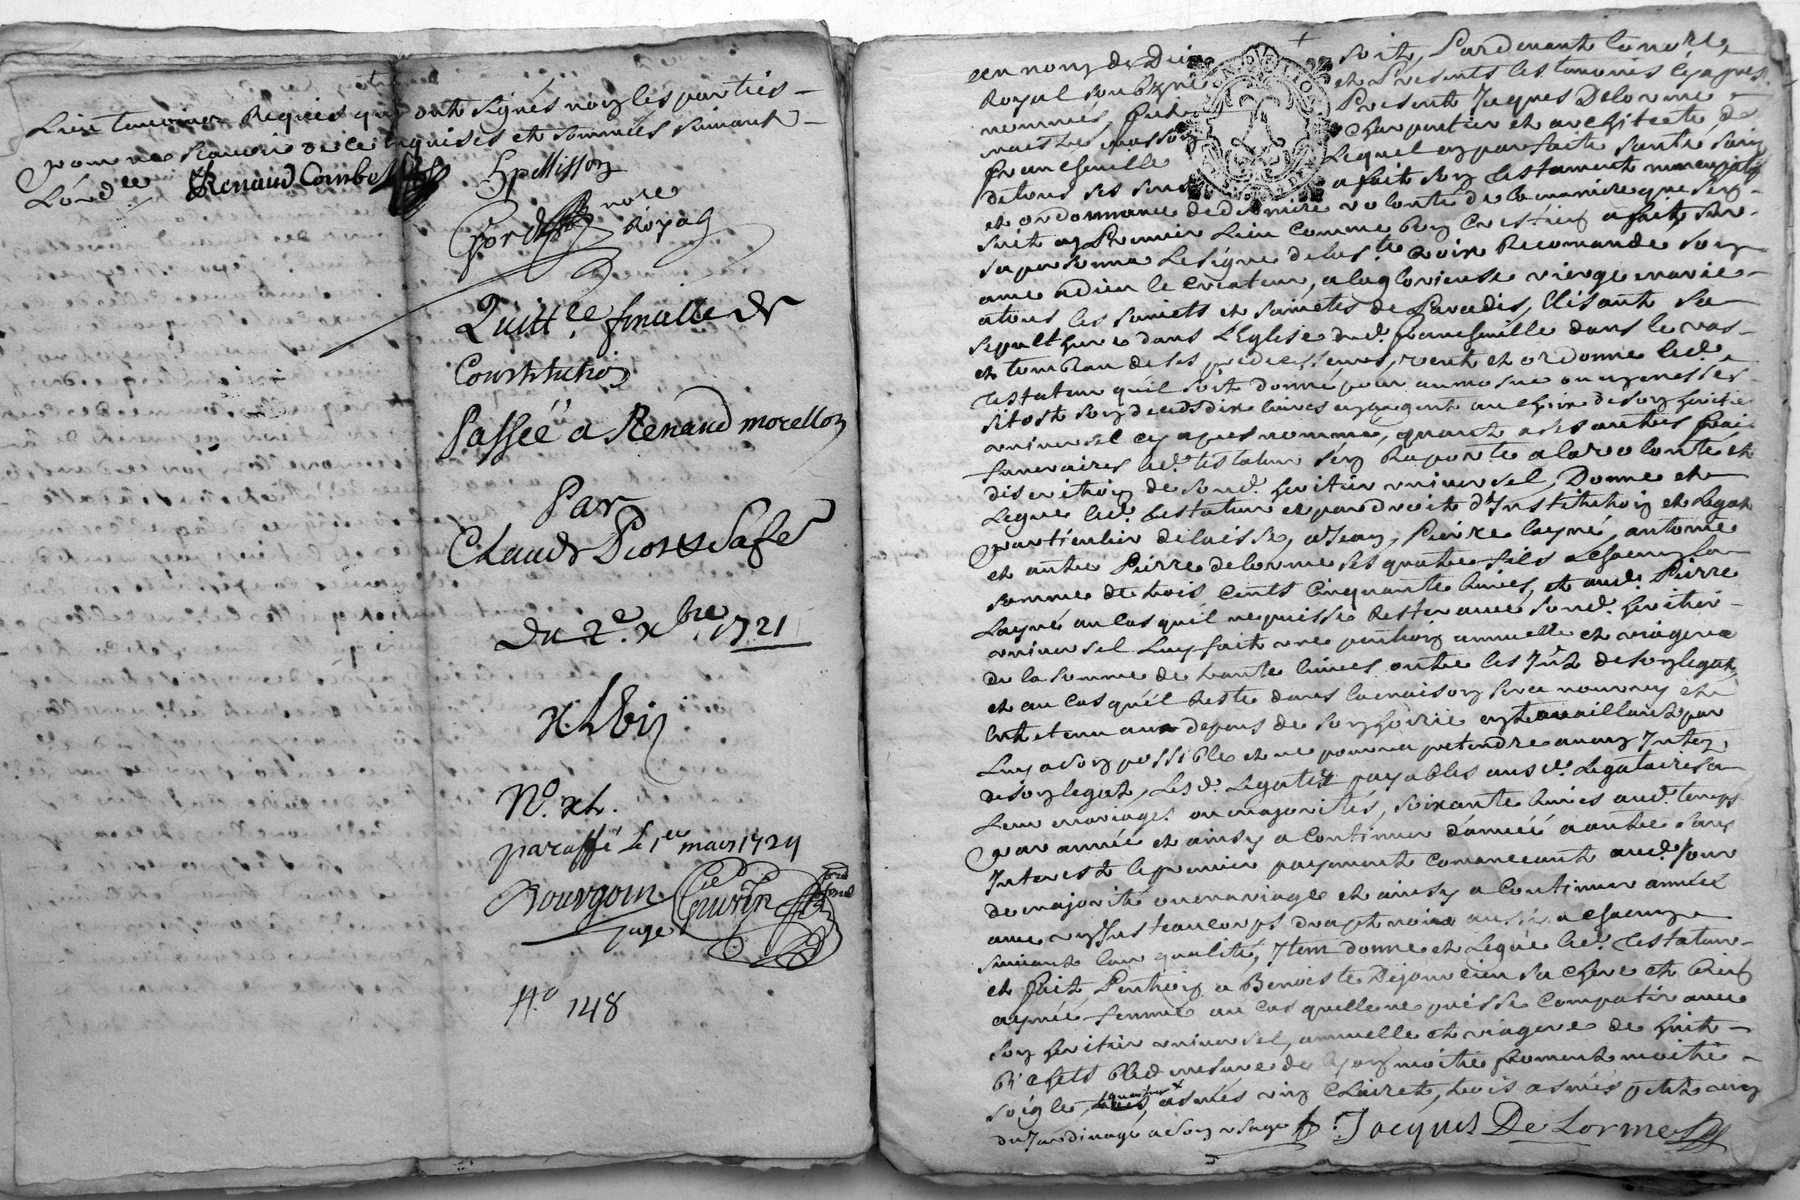 Lieu temoins Requis qui ont signés non les parties
pour ne scavoir de ce enquises et sommées suivant
L'ord^ce Renaud Combet
Hpellisson
nore
Royal
Quitt^ce finalle de
Constitution
Passée a Renaud morellon
Par
Claude
Du 2^e. x^bre. 1721
N^o. xL.
paraffé le 1^er mars 1724
Bourgoin
juge
N^o 148
Au nom de Dieu soit, Pardevant le no^re
Royal soubzigné et Presents les temoins cy apres
nommés, fut Present Jaques Delorme
maitre masson Charpentier et architecte, de
francheville Lequel en parfaite santé
de tous ses sens a fait son testament nuncupatif
et ordonnance de derniere volonté de la maniere que sen
suit en Premier Lieu comme bon Crestien a fait sur
sa personne Le signe de la s^te croix Recomande son
ame a dieu le Createur, a la glorieuse vierge marie
a tous les saincts et sainctes de Paradis, Elisant sa
sepulthure dans L'Eglise dud. francheville dans le vas
et tombeau de ses predecesseurs, veut et ordonne led.
testateur qu'il soit donné pour aumosne ou en messes
sitost son deceds dix livres en argent au choix de son heritier
universel cy apres nommé, quant a ses autres frais
funeraires led. testateur s'en Raporte a la volonté et
discretion de sond. heritier universel, Donne et
Legue led. testateur et par droit d'Institution et Legat
particulier delaisse, a Jean, Pierre layné, antoine
et autre Pierre delorme ses quatre fils a chacun la
somme de trois cents cinquante livres, et aud. Pierre
Layné au cas qu'il ne puisse Rester avec sond. heritier
universel Luy fait une pention annuelle et viagere
de la somme de trante livres outre les Int. de son legat
et au cas qu'il Reste dans la maison sera nourry et
Entretenu aux depens de son hoirie en travaillant par
Luy a son possible et ne pourra pretendre aucun Interest
de son legat, Lesd. Legats payables ausd. Legataires a
Leur mariage ou majorités, soixante livres aud. temps
par année et ainsy a continuer d'année a autre sans
Interest le premier payement comancant aud. Jour
de majorité ou mariage et ainsy a Continuer année
avec un Justaucorps drapt noir aussy a chacun
suivant leur qualité, Item donne et Legue led. Testateur
et fait Pention a Benoiste sa chere et bien
aymée femme au cas quelle ne puisse Compatir avec
son heritier universel, annuelle et viagere de huit
bichets bled mesure de Lyon moitié froment moitié
soigle, quatre asnées vin Clairet, trois asnées petit vin
du Jardinage a son usage Jacques De Lorme